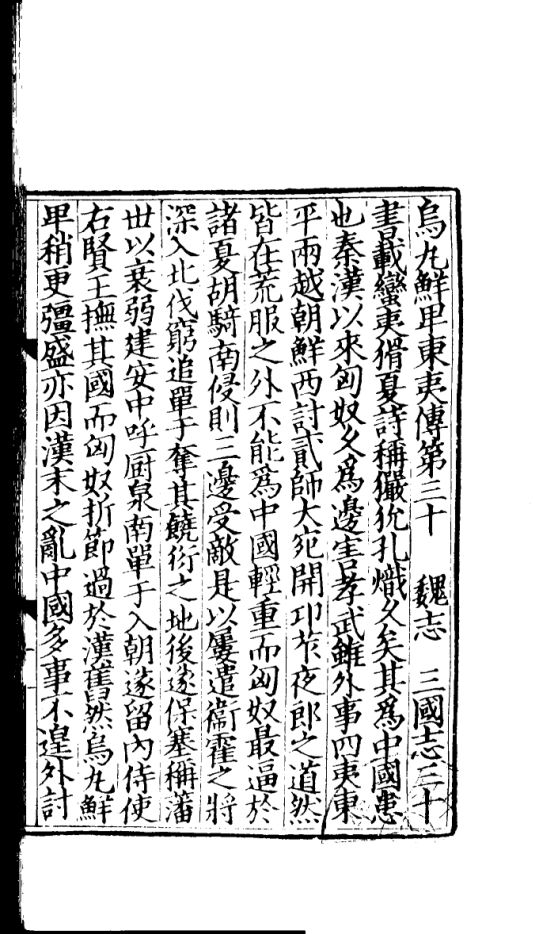 烏丸鮮卑東夷傳第三十　魏志　三國志三十
書載蠻夷猾夏詩稱玁狁孔熾久矣其爲中國患
也秦漢以來匈奴久爲邊害孝武雖外事四夷東
平兩越朝鮮西討貳師大宛開邛苲夜郎之道然
皆在荒服之外不能爲中國輕重而匈奴最逼於
諸夏胡騎南侵則三邊受敵是以屢遣衞霍之將
深入北伐窮追單于奪其饒衍之地後遂保塞稱藩
世以衰弱建安中呼厨泉南單于入朝遂留內侍使
右賢王撫其國而匈奴折節過於漢舊然烏丸鮮
卑稍更彊盛亦因漢末之亂中國多事不遑外討